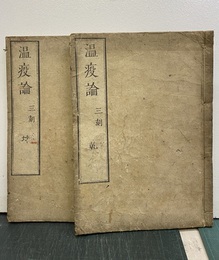 温疫論
三刻
乾
温疫論
三刻
坤